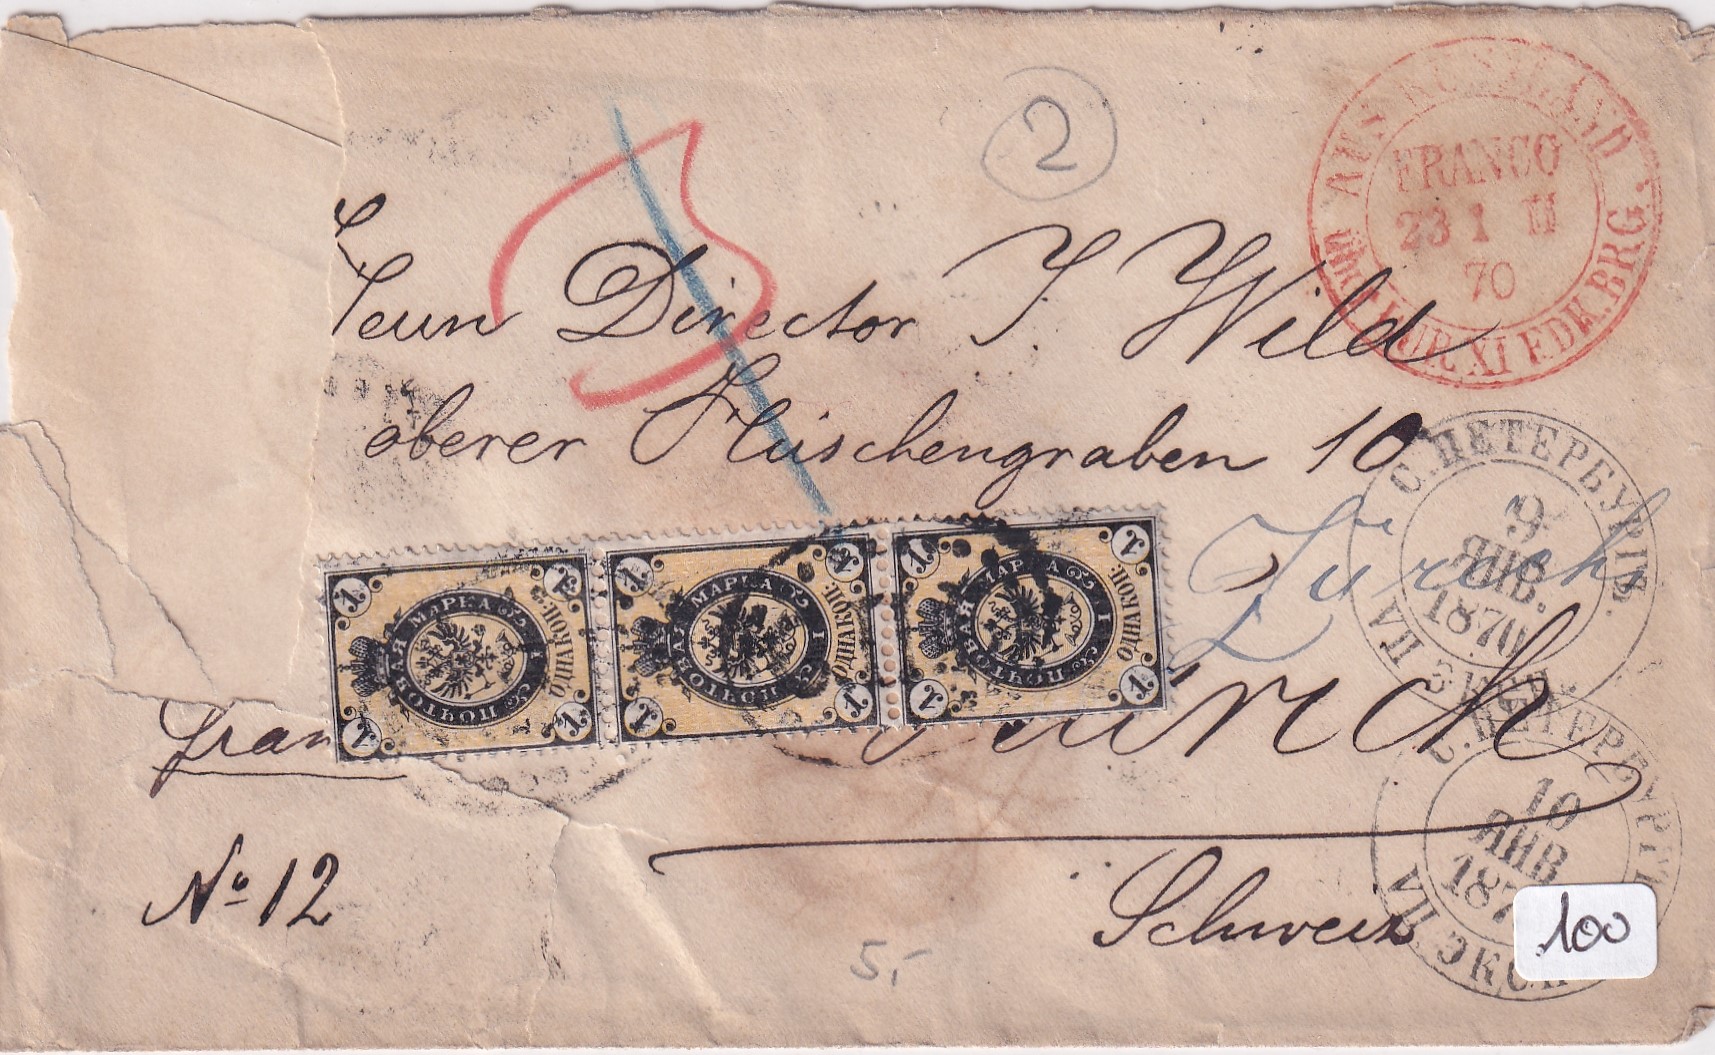 2
AUS RUSSLAND
FRANCO
23 1 II
70
EUR. XI EDK. BRG.
Director J. Wild
oberer Hirschengraben 10
Zürich
С. ПЕТЕРБУРГЪ.
9
ЯНВ.
1870
ЭКСП.
1 МАРКА ПОЧТОВАЯ 1 К.
ОДНА КОП:
1 МАРКА ПОЧТОВАЯ 1 К.
ОДНА КОП:
1 МАРКА ПОЧТОВАЯ 1 К.
ОДНА КОП:
fran
ürich
С. ПЕТЕРБУРГЪ
10
ЯНВ
187
ЭКСП
No 12
Schweiz
5,-
100